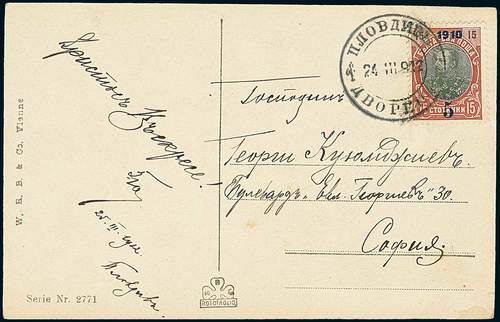 Христосъ
Възкресе!
25. III. 912.
Пловдивъ.
W. R. B. & Co. Vienne
Serie Nr. 2771
ПЛОВДИВЪ
24 III 912
ДВОРЕЦ
1910 15
СТОТИНКИ 15
5
Господинъ
Георги Куюмджиевъ
Булевардъ „Евл. Георгиевъ" 30.
София.